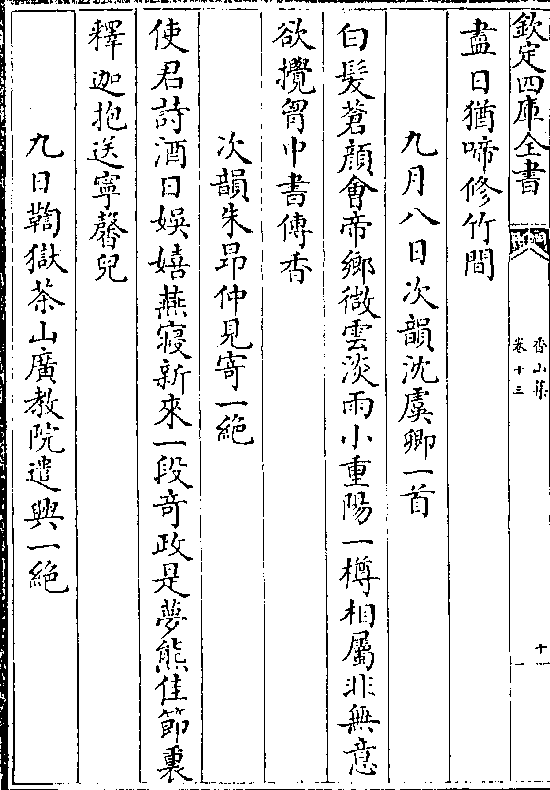 欽定四庫全書
香山集
卷十三
十一
盡日猶啼修竹間
九月八日次韻沈虞卿一首
白髮蒼顔㑹帝鄉微雲淡雨小重陽一樽相屬非無意
欲攪胷中書傳香
次韻朱昂仲見寄一絶
使君詩酒日娛嬉燕寢新來一段竒政是夢熊佳節裏
釋迦抱送寧馨兒
九日鞫獄茶山廣教院遣興一絶